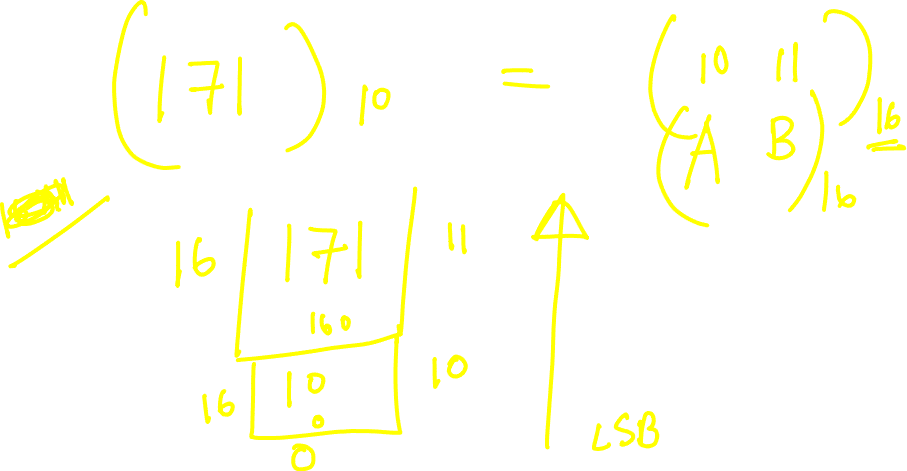 (171)10 = (10 11)16
(A B)16
16 171 11
160
16 10 10
0
0
LSB